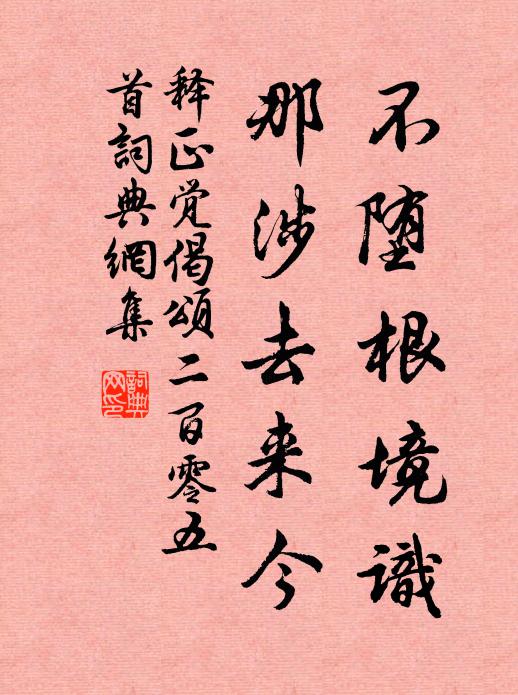 不堕根境識
那涉去来今
释正觉偈頌二百零五
首詞典網集
詞典网印